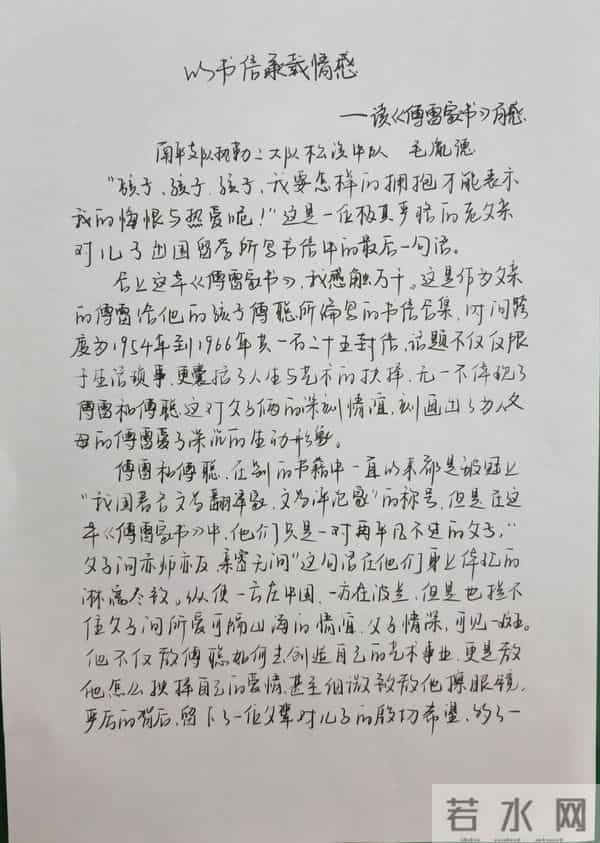 以书信承载情感
——读《傅雷家书》有感
南平支队执勤二大队松溪中队 毛胤德
“孩子，孩子，孩子，我要怎样的拥抱才能表示
我的悔恨与热爱呢！”这是一位极其严格的老父亲
对儿子出国留学所写书信中的最后一句话。
合上这本《傅雷家书》，我感触万千。这是作为父亲
的傅雷给他的孩子傅聪所编写的书信合集，时间跨
度为1954年到1966年共一百二十五封信，话题不仅仅限
于生活琐事，更囊括了人生与艺术的抉择，无一不体现了
傅雷和傅聪这对父子俩的深刻情谊，刻画出了为人父
母的傅雷爱子深沉的生动形象。
傅雷和傅聪，在别的书籍中一直以来都是被冠上
“我国著名文学翻译家、文学评论家”的称号，但是在这
本《傅雷家书》中，他们只是一对再平凡不过的父子，“
父子间亦师亦友，亲密无间”这句话在他们身上体现的
淋漓尽致。纵使一方在中国，一方在波兰，但是也挡不
住父子间所爱可隔山海的情谊，父子情深，可见一斑。
他不仅教傅聪如何去创造自己的艺术事业，更是教
他怎么抉择自己的爱情，甚至细微致教他擦眼镜，
严厉的背后，留下了一位父辈对儿子的殷切希望，为了一
若水网